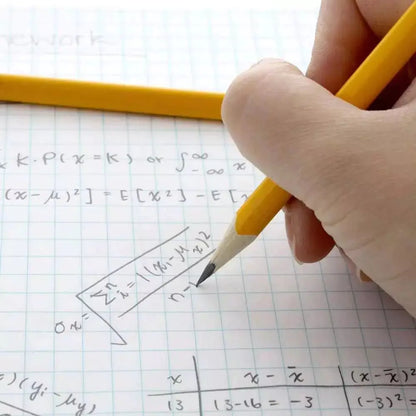 homework
K·P(x=K) or ∫_{-∞}^{∞} x
(x-μ)²] = E[x²] - E[x
σx = √(Σ_{i=1}^{n} (xi-μx)² / n-1
)(yi-μy)
x | x - x̄ | (x-x̄)²
13 | 13-16 = -3 | (-3)² =